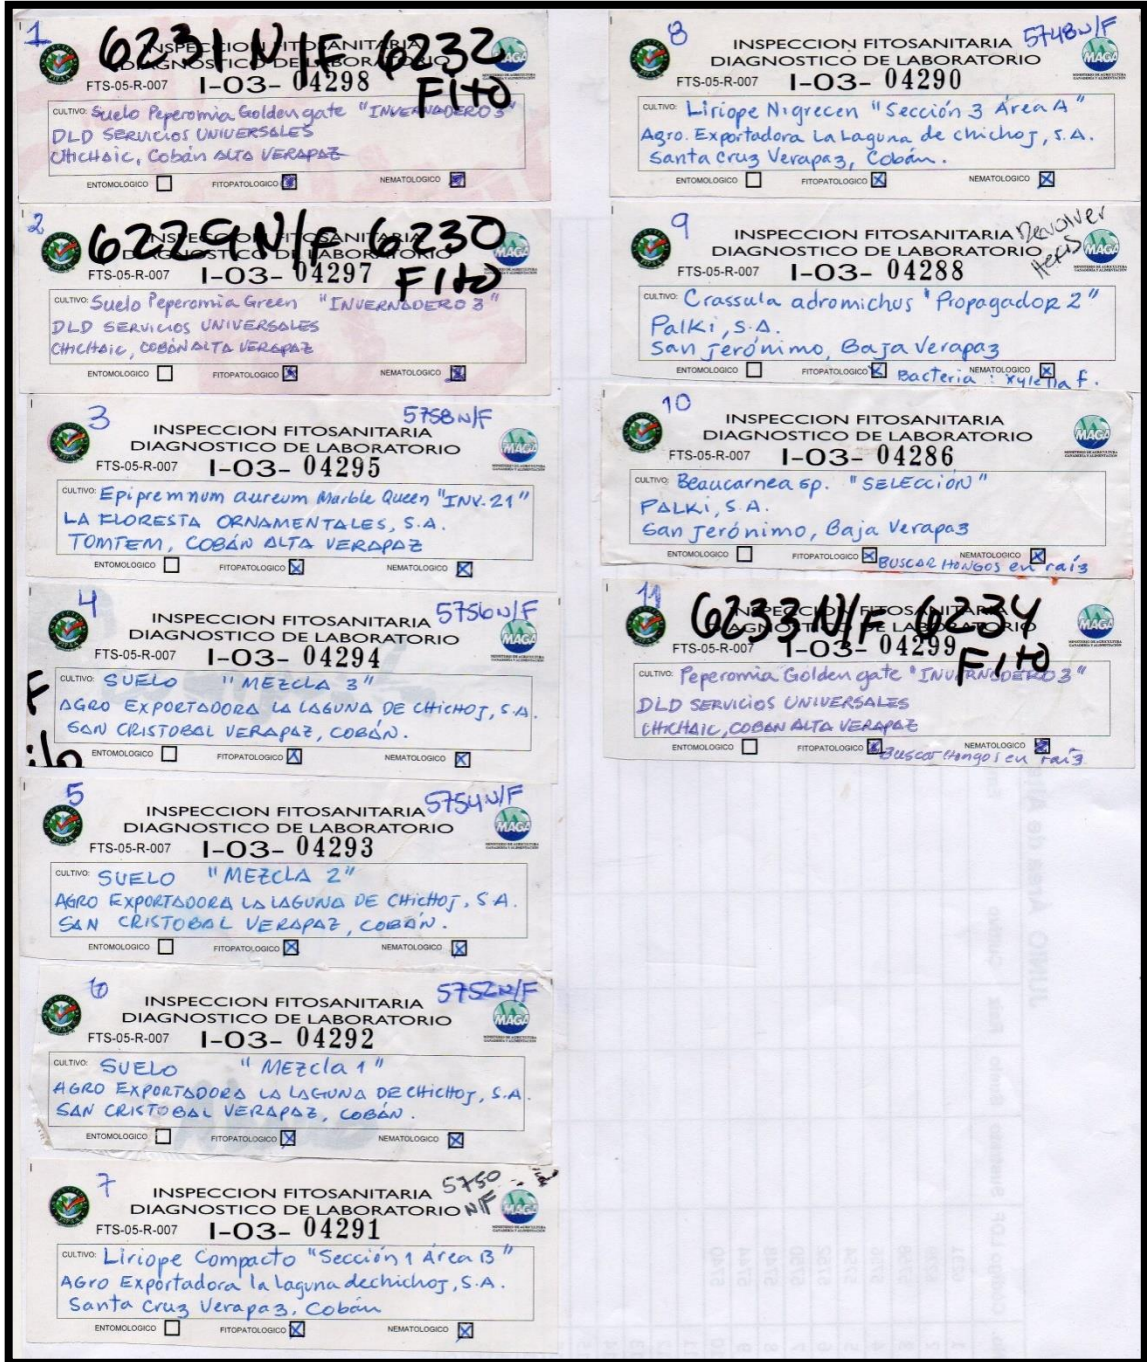 1
6231 N/F 6232
FITO
INSPECCION FITOSANITARIA
DIAGNOSTICO DE LABORATORIO
FTS-05-R-007 I-03- 04298
MAGA
CULTIVO: Suelo Peperomia Golden gate "INVERNADERO 3"
DLD SERVICIOS UNIVERSALES
CHICHAIC, Cobán ALTA VERAPAZ
ENTOMOLOGICO FITOPATOLOGICO NEMATOLOGICO
2
6229 N/F 6230
FITO
INSPECCION FITOSANITARIA
DIAGNOSTICO DE LABORATORIO
FTS-05-R-007 I-03- 04297
MAGA
CULTIVO: Suelo Peperomia Green "INVERNADERO 3"
DLD SERVICIOS UNIVERSALES
CHICHAIC, COBÁN ALTA VERAPAZ
ENTOMOLOGICO FITOPATOLOGICO NEMATOLOGICO
3 5758 N/F
INSPECCION FITOSANITARIA
DIAGNOSTICO DE LABORATORIO
FTS-05-R-007 I-03- 04295
MAGA
CULTIVO: Epipremnum aureum Marble Queen "INV. 21"
LA FLORESTA ORNAMENTALES, S.A.
TOMTEM, COBÁN ALTA VERAPAZ
ENTOMOLOGICO FITOPATOLOGICO NEMATOLOGICO
4 5756 N/F
INSPECCION FITOSANITARIA
DIAGNOSTICO DE LABORATORIO
FTS-05-R-007 I-03- 04294
MAGA
CULTIVO: SUELO "MEZCLA 3"
AGRO EXPORTADORA LA LAGUNA DE CHICHOJ, S.A.
SAN CRISTOBAL VERAPAZ, COBÁN.
ENTOMOLOGICO FITOPATOLOGICO NEMATOLOGICO
5 5754 N/F
INSPECCION FITOSANITARIA
DIAGNOSTICO DE LABORATORIO
FTS-05-R-007 I-03- 04293
MAGA
CULTIVO: SUELO "MEZCLA 2"
AGRO EXPORTADORA LA LAGUNA DE CHICHOJ, S.A.
SAN CRISTOBAL VERAPAZ, COBÁN.
ENTOMOLOGICO FITOPATOLOGICO NEMATOLOGICO
6 5752 N/F
INSPECCION FITOSANITARIA
DIAGNOSTICO DE LABORATORIO
FTS-05-R-007 I-03- 04292
MAGA
CULTIVO: SUELO "MEZCLA 1"
AGRO EXPORTADORA LA LAGUNA DE CHICHOJ, S.A.
SAN CRISTOBAL VERAPAZ, COBÁN.
ENTOMOLOGICO FITOPATOLOGICO NEMATOLOGICO
7 5750 N/F
INSPECCION FITOSANITARIA
DIAGNOSTICO DE LABORATORIO
FTS-05-R-007 I-03- 04291
MAGA
CULTIVO: Liriope Compacto "Sección 1 Área B"
AGro Exportadora la Laguna de chichoj, S.A.
Santa Cruz Verapaz, Cobán
ENTOMOLOGICO FITOPATOLOGICO NEMATOLOGICO
8 5748 N/F
INSPECCION FITOSANITARIA
DIAGNOSTICO DE LABORATORIO
FTS-05-R-007 I-03- 04290
MAGA
CULTIVO: Liriope Nigrecen "Sección 3 Área A"
Agro. Exportadora La Laguna de chichoj, S.A.
Santa Cruz Verapaz, Cobán.
ENTOMOLOGICO FITOPATOLOGICO NEMATOLOGICO
9 Devolver
INSPECCION FITOSANITARIA
DIAGNOSTICO DE LABORATORIO
FTS-05-R-007 I-03- 04288
MAGA
CULTIVO: Crassula adromichus "Propagador 2"
Palki, S.A.
San Jerónimo, Baja Verapaz
ENTOMOLOGICO FITOPATOLOGICO NEMATOLOGICO
Bacteria: xylella f.
10
INSPECCION FITOSANITARIA
DIAGNOSTICO DE LABORATORIO
FTS-05-R-007 I-03- 04286
MAGA
CULTIVO: Beaucarnea sp. "SELECCIÓN"
PALKI, S.A.
San Jerónimo, Baja Verapaz
ENTOMOLOGICO FITOPATOLOGICO NEMATOLOGICO
BUSCAR HONGOS en raíz
11
6233 N/F 6234
FITO
INSPECCION FITOSANITARIA
DIAGNOSTICO DE LABORATORIO
FTS-05-R-007 I-03- 04299
MAGA
CULTIVO: Peperomia Golden gate "INVERNADERO 3"
DLD SERVICIOS UNIVERSALES
CHICHAIC, COBAN ALTA VERAPAZ
ENTOMOLOGICO FITOPATOLOGICO NEMATOLOGICO
Buscar Hongos en raíz